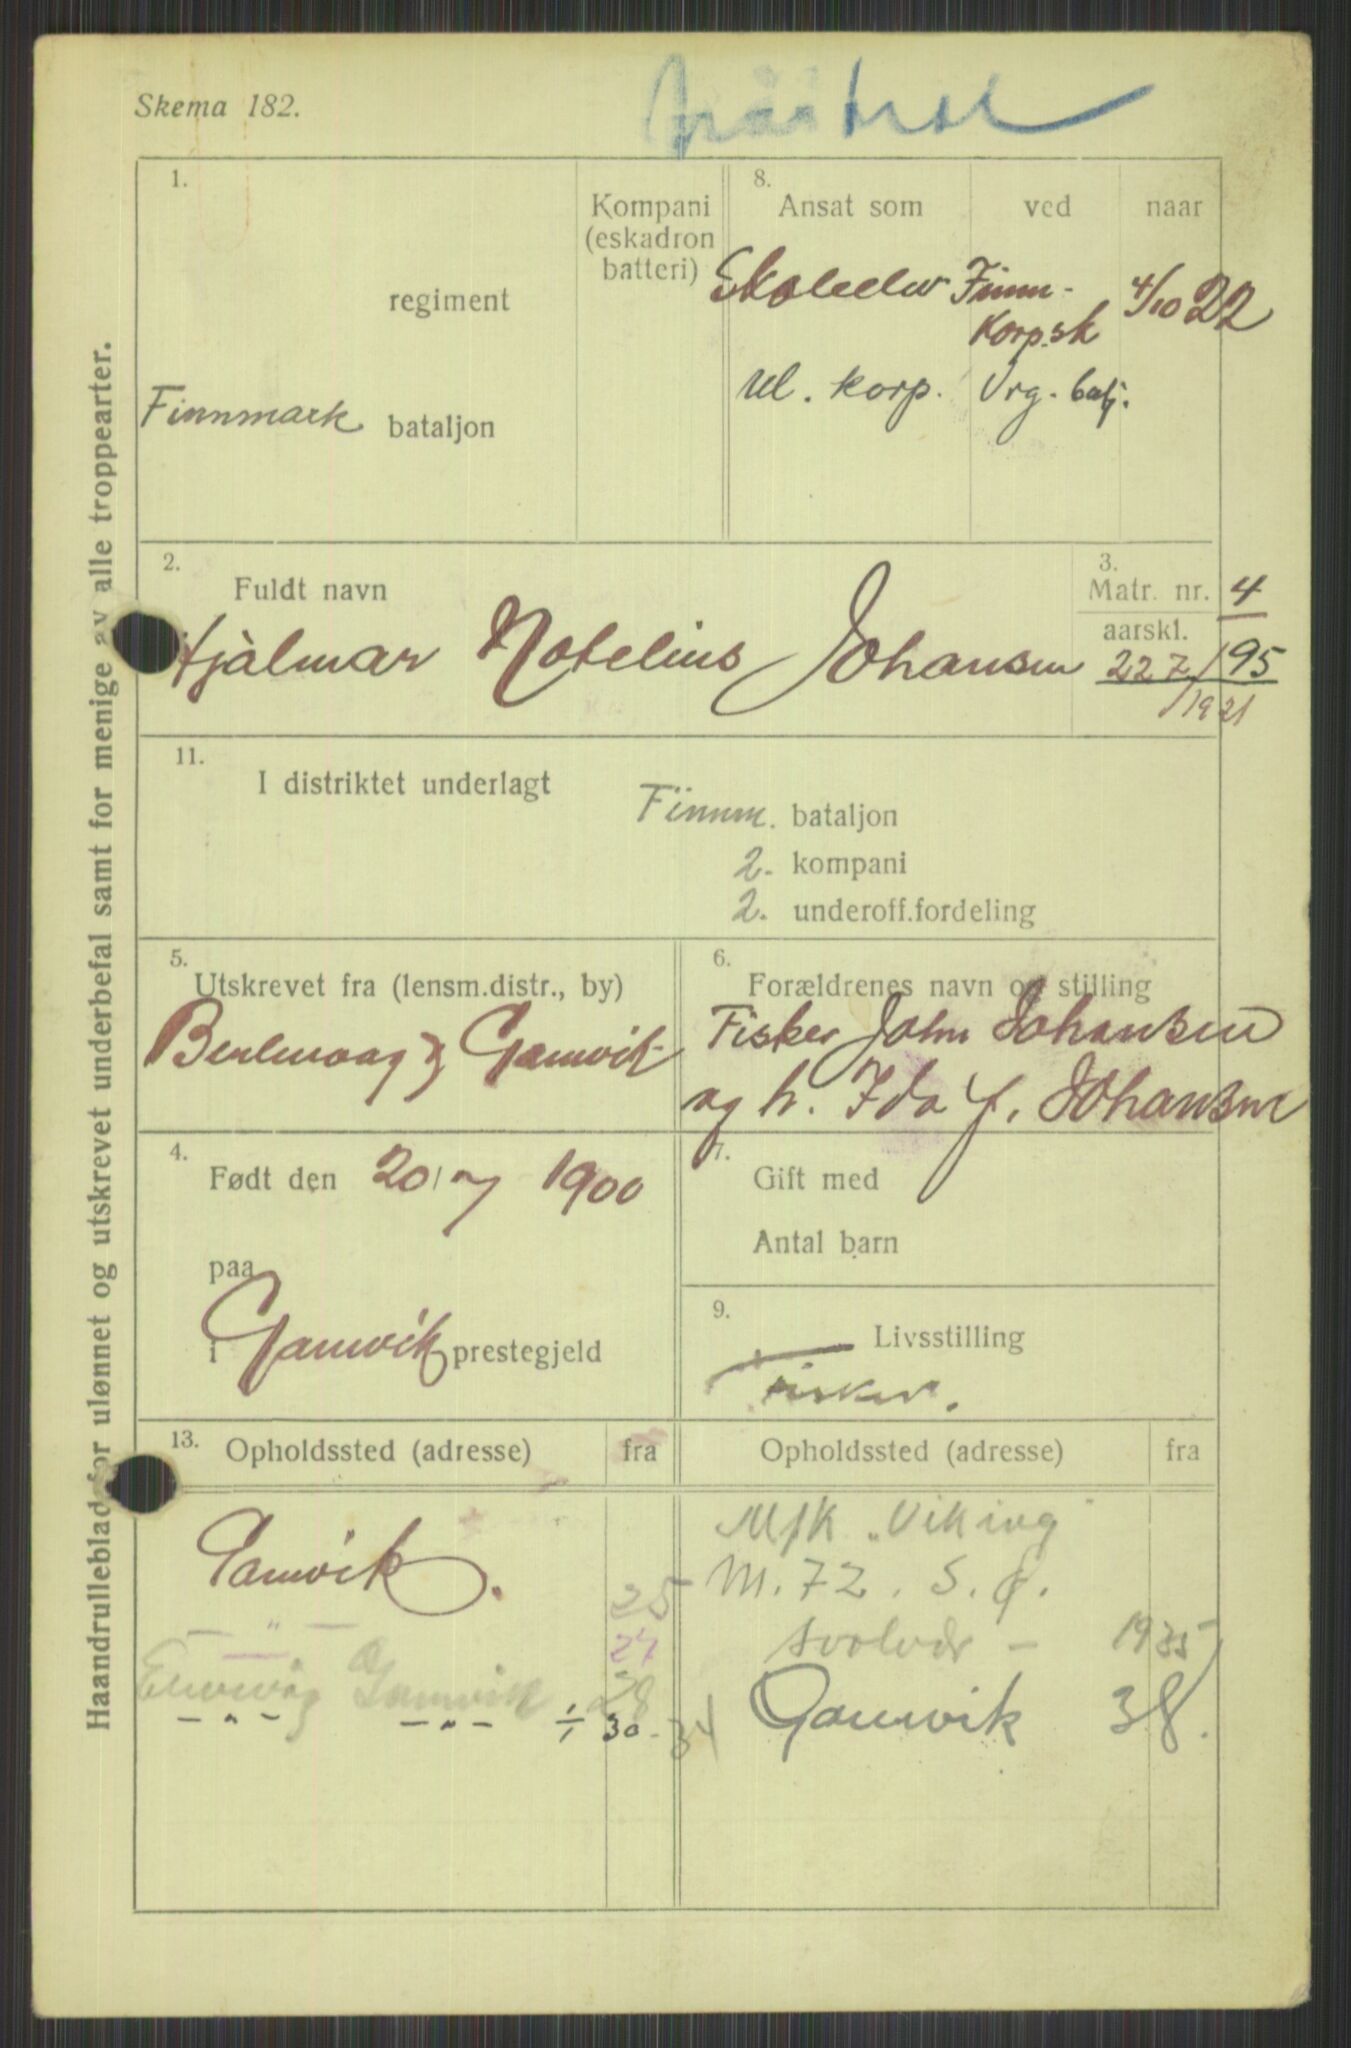 Skema 182.
1.
regiment
Finnmark bataljon
Kompani
(eskadron
batteri)
8.
Ansat som ved naar
Skoleelev Finnm- 4/10 22
Korp.sk
Ul. korp. Vrg. batj.
2.
Fuldt navn
Hjalmar Notelius Johansen
3.
Matr. nr. 4
aarskl.
227/95
/1921
11.
I distriktet underlagt
Finnm. bataljon
2. kompani
2. underoff.fordeling
5.
Utskrevet fra (lensm.distr., by)
Berlevaag & Gamvik
6.
Forældrenes navn og stilling
Fisker John Johansen
og h. Ida f. Johansen
4.
Født den 20/ 1900
paa
i Gamvik prestegjeld
7.
Gift med
Antal barn
9.
Livsstilling
Fisker.
13.
Opholdssted (adresse) fra
Gamvik.
— " — 25
— 27
Gamvik 28
— " — — " — ÷ 30 - 34
Opholdssted (adresse) fra
M/K "Viking"
M. 72. S. Ø.
Svolvær — 1935
Gamvik 38.
Haandrulleblad for ulønnet og utskrevet underbefal samt for menige av alle troppearter.